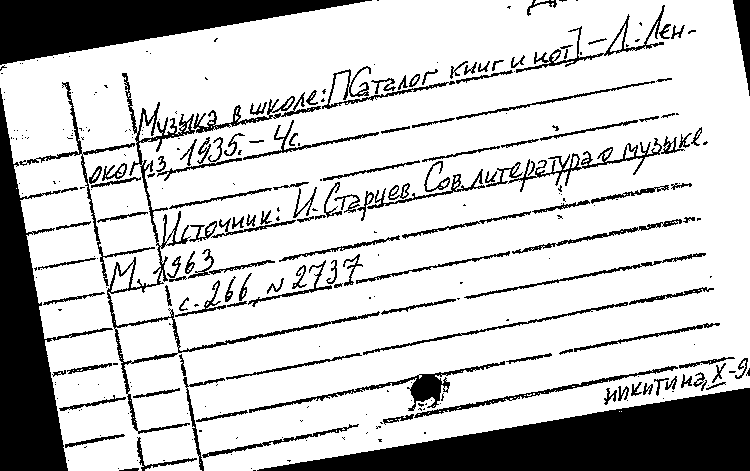 Музыка в школе: [Каталог книг и нот]. – Л.: Лен-
окогиз, 1935. – 4с.
Источник: И. Старцев. Сов. литература о музыке.
М., 1963
с. 266, № 2737
никитина, X-9